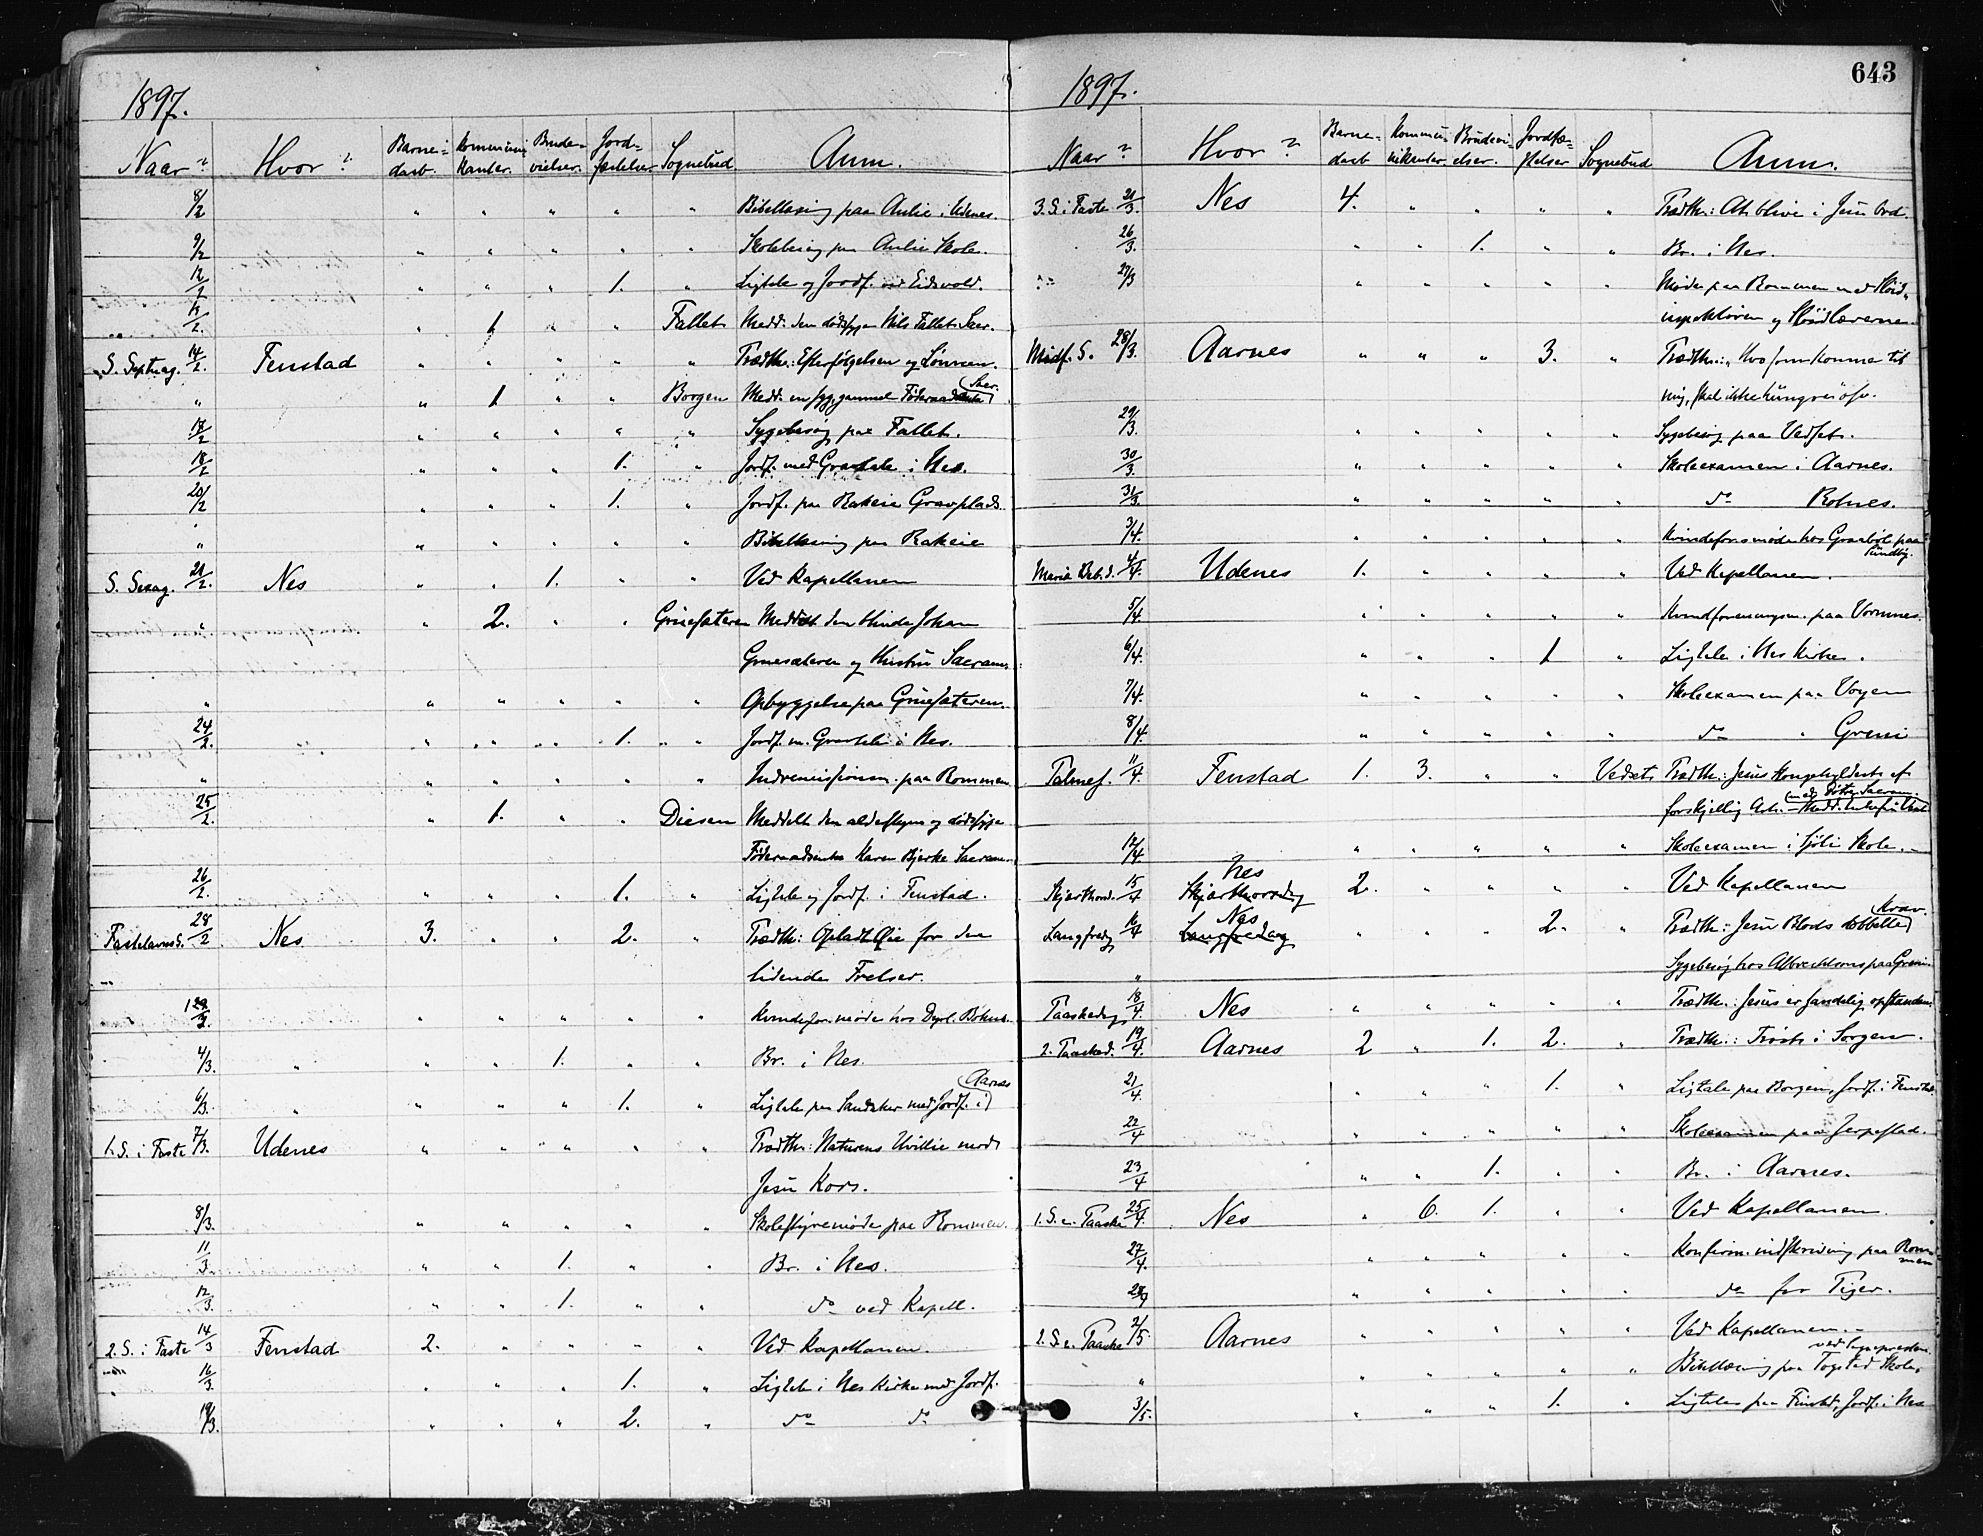 643
1897.
Naar? Hvor? Barne=daab. Kommuni=kanter. Brude=vielser. Jord=fæstelser. Sognebud. Anm.
8/2 " " " " " Bibellæsning paa Aulie i Udenes.
9/2 " " " " " Skolebesøg paa Aulie Skole.
12/2 " " " 1. " Ligtale og Jordf. ved Eidsvold.
13/2. " 1 " " Fallet Medd. den dødssyge Nils Fallet Sacr.
S. Septuag. 14/2. Fenstad " " " " " Træthm: Efterfølgelsen og Lønnen.
" " 1 " " Borgen Medd. en syg, gammel Føderaads Sacr.
17/2 " " " " " Sygebesøg paa Fallet.
18/2 " " " 1. " Jordf. med Gravtale i Nes.
20/2 " " " 1. " Jordf. paa Rakeie Gravplads.
" " " " " " Bibellæsning paa Rakeie
S. Sexag. 21/2. Nes " " 1. " " Ved Kapellanen
" " 2. " " Gruesæteren Meddelt den blinde Johan
Gruesæteren og Hustru Sacram.
" " " " " " Opbyggelse paa Gruesæteren.
24/2. " " " 1. " Jordf. m. Gravtale i Nes.
" " " " " " Indremissionsm. paa Rommen
25/2. " 1. " " Diesen Meddelt den aldersstegne og dødssyge
Føderaadsenke Karen Bjerke Sacram.
26/2. " " " 1. " Ligtale og Jordf. i Fenstad.
Fastelavns S. 28/2 Nes 3. " " 2. " Trædthm: Opladt Øie for den
lidende Frelser.
" " " " " Kvindefor. møde hos Dyrl. Bohnes.
4/3. " " " 1. " " Br. i Nes.
6/3. " " " " 1. " Ligtale paa Sandaker med Jordf. i Aarnes
1. S. i Faste 7/3. Udenes " " " " " Trædthm: Naturens Uvillie mod
Jesu Kors.
8/3. " " " " " Skolestyremøde paa Rommen.
11/3. " " 1. " " Br. i Nes.
12/3. " " 1. " " do ved Kapell.
2. S. i Faste 14/3 Fenstad 2. " " " " Ved Kapellanen.
" 16/3 " " " 1. " Ligtale i Nes Kirke med Jordf.
19/3. " " " 2. " do do
1897.
Naar? Hvor? Barne=daab Kommu=nikanter. Brudevi=elser. Jordfæ=stelser Sognebud Anm.
3. S. i Faste 21/3. Nes 4. " " " " Trædthm: At blive i Jesu Ord.
26/3. " " 1. " " Br. i Nes.
27/3 " " " " " Møde paa Rommen med Sløid=
inspektøren og Sløidlærerne.
Midf. S. 28/3. Aarnes " " " 3. " Trædthm: "Hvo som kommer til
mig, skal ikke hungre osv.
29/3. " " " " " Sygebesøg paa Vedset.
30/3. " " " " " Skoleexamen i Aarnes.
31/3. " " " " " do Bohnes.
3/4. " " " " " Kvindefors møde hos Graabøl paa Sundby.
Mariæ Beb. d. 4/4. Udenes 1. " " " " Ved Kapellanen.
5/4. " " " " " Kvindforeningsm. paa Vormnes.
6/4. " " " 1 " Ligtale i Nes Kirke.
7/4. " " " " " Skoleexamen paa Vøyen
8/4. " " " " " do " Greni
Palmes. 11/4. Fenstad 1. 3. " " Vedset Trædthm: Jesus Kongehyldest af
forskjellig Art.
12/4 " " " " " Skoleexamen i Sjøli Skole.
Skjærthord. 15/4 Nes Skjærthorsdag 2. " " " " Ved Kapellanen
Langfredag 16/4 Nes Langfredag " " " 2. " Trædthm: Jesu Blods dobbelte Krav.
" Sygebesøg hos Albrechtsons paa Greni.
Paaskedag 18/4. Nes " " " " " Trædthm: Jesus er sandelig opstanden.
2. Paasked. 19/4. Aarnes 2 " 1. 2. " Trædthm: Trøst i Sorgen.
21/4. " " " 1. " Ligtale paa Borgen, Jordf. i Fenstad.
22/4 " " " " " Skoleexamen paa Jerpestad.
23/4 " " 1. " " Br. i Aarnes.
1. S. e. Paaske 25/4. Nes " 6. 1. " " Ved Kapellanen.
27/4. " " " " " Konfirm. indskrivning paa Rommen
28/4 " " " " " do for Piger.
2. S. e. Paaske 2/5. Aarnes " " " " " Ved Kapellanen.
" " " " " " Bibellæsning paa Togstad Skole, ved Sognepresten.
3/5. " " " 1. " Ligtale paa Finstad, Jordf. i Nes